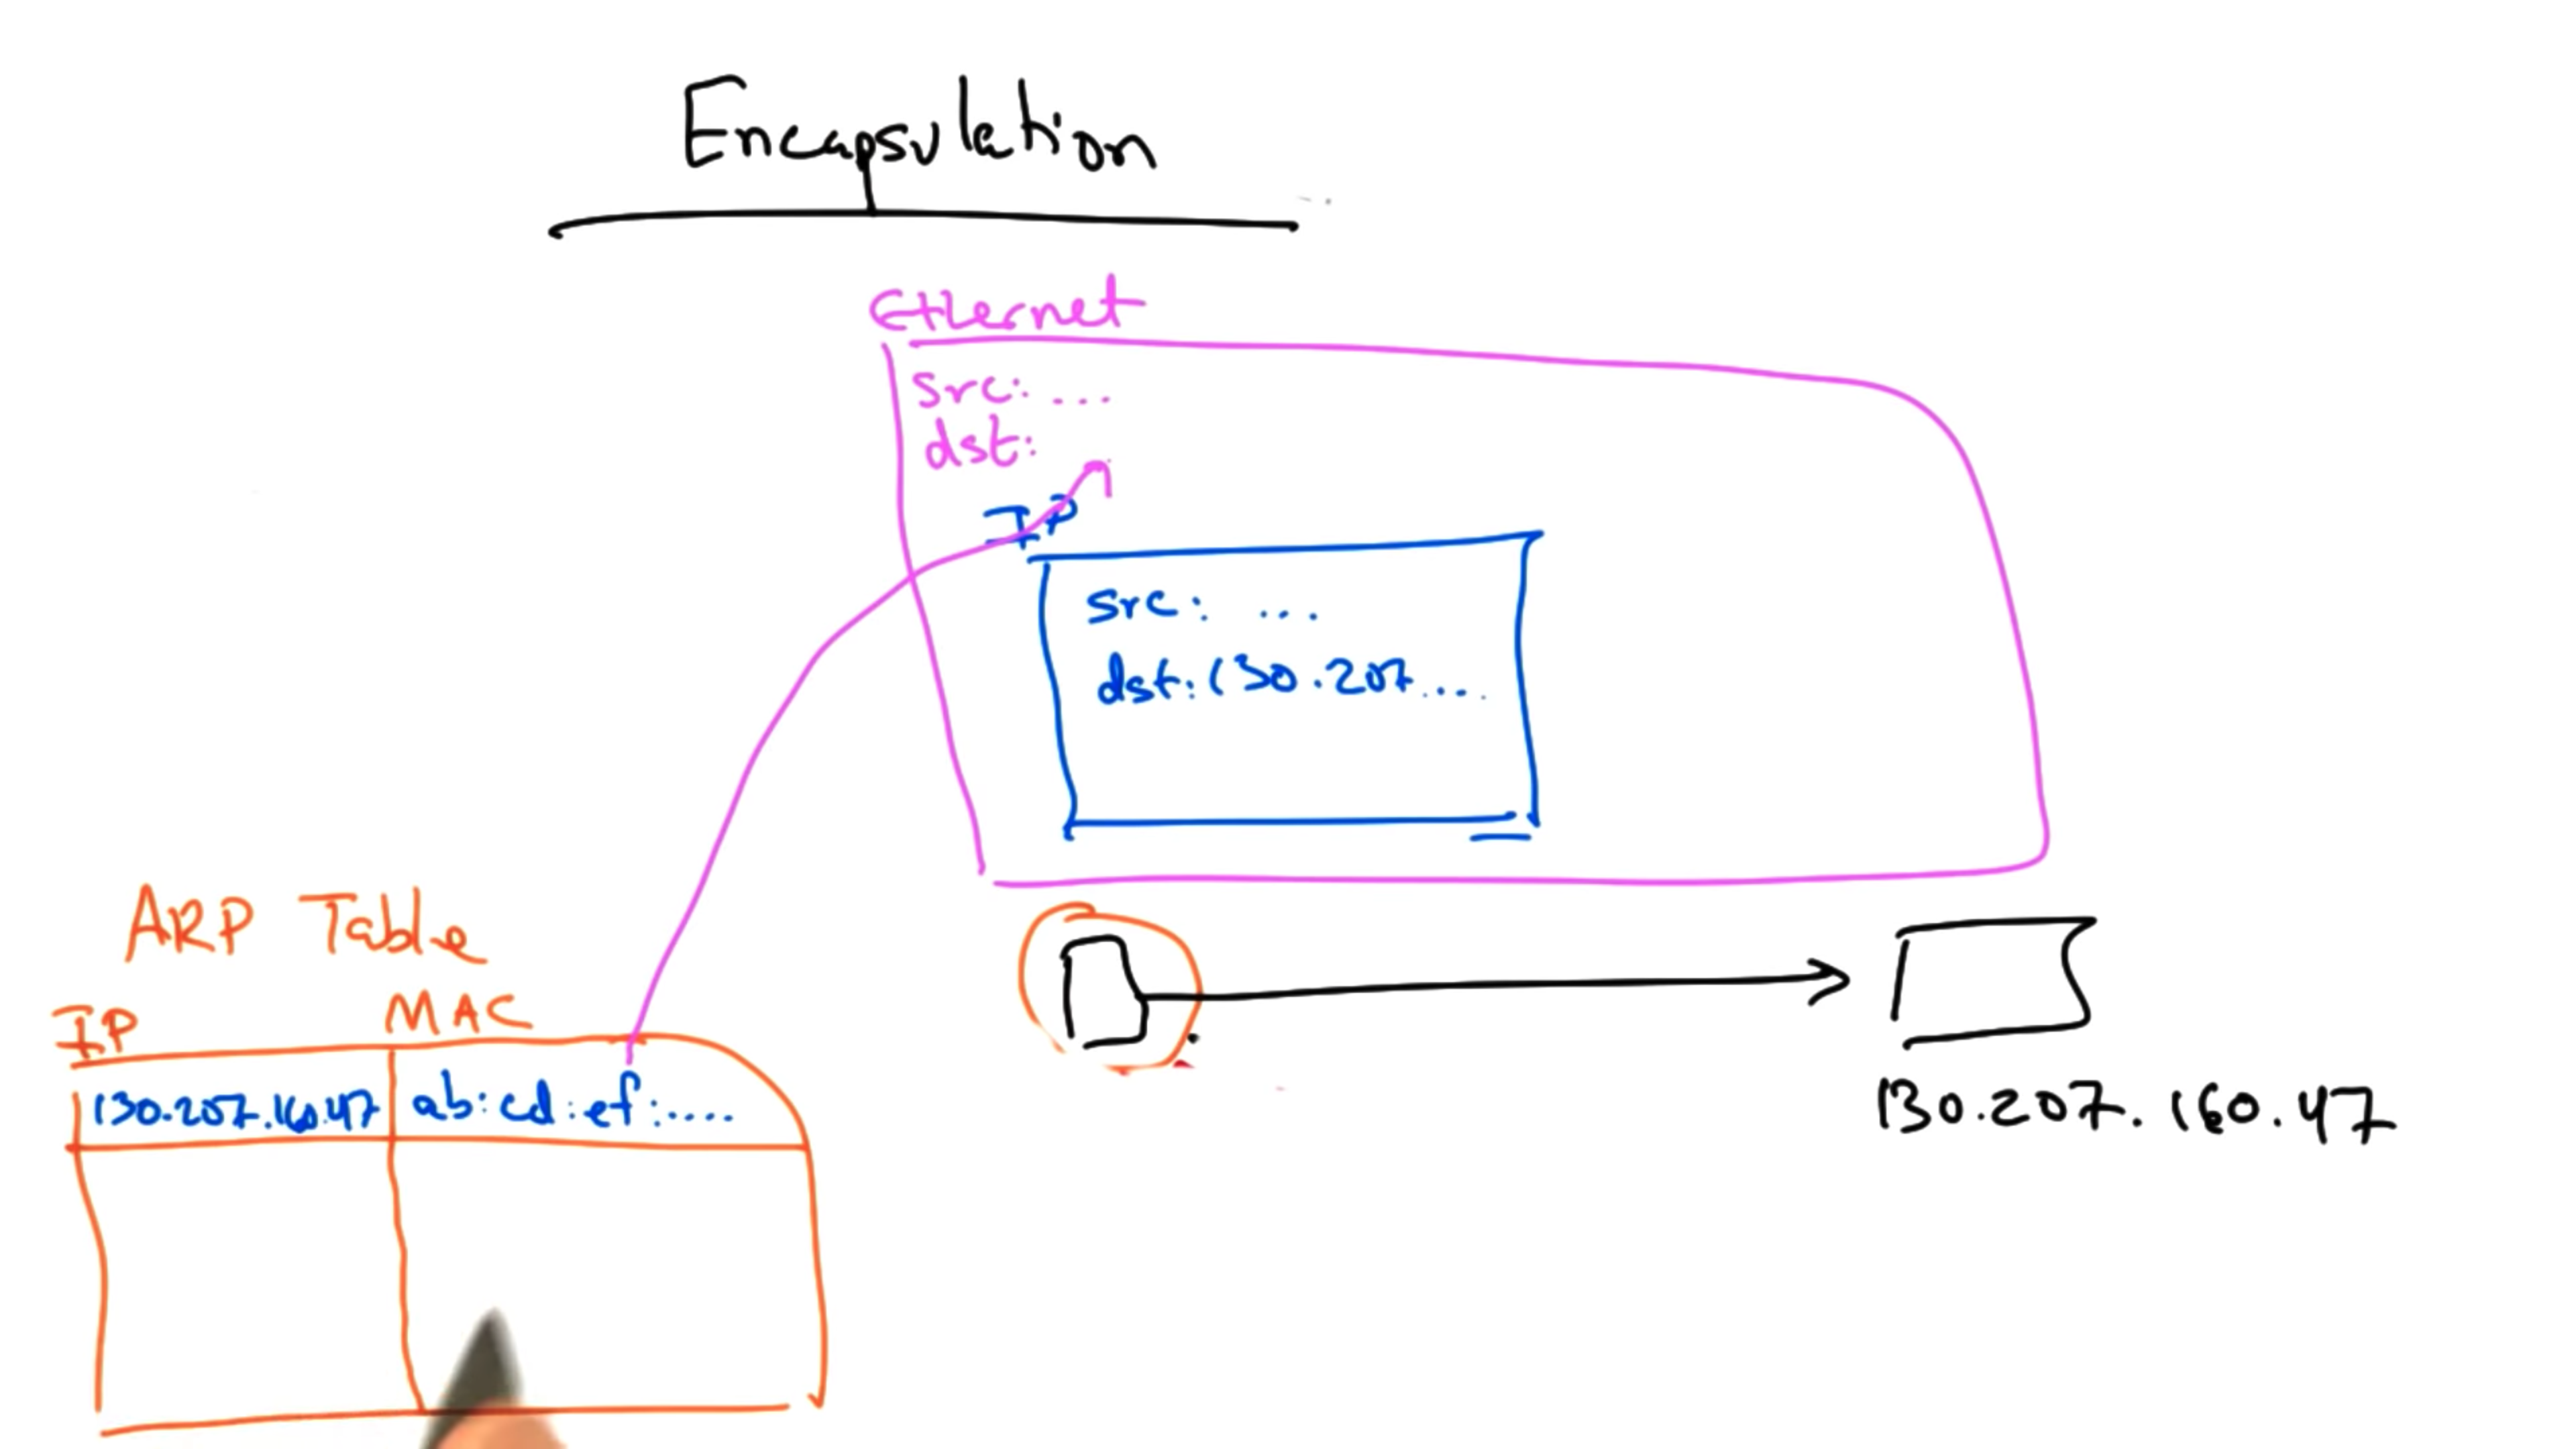 Encapsulation
Ethernet
src: ...
dst:
IP
src: ...
dst: 130.207....
ARP Table
IP MAC
130.207.160.47 ab:cd:ef:....
130.207.160.47